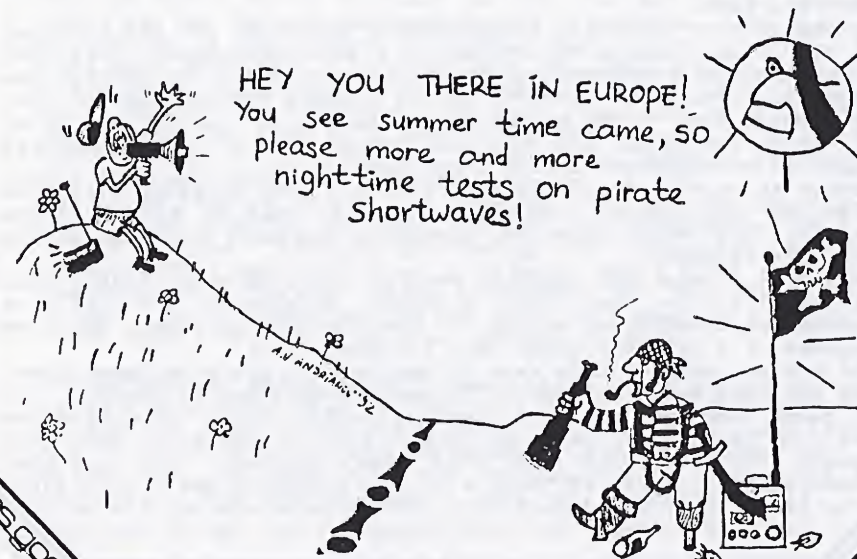 HEY YOU THERE IN EUROPE!
You see summer time came, so
please more and more
nighttime tests on pirate
shortwaves!